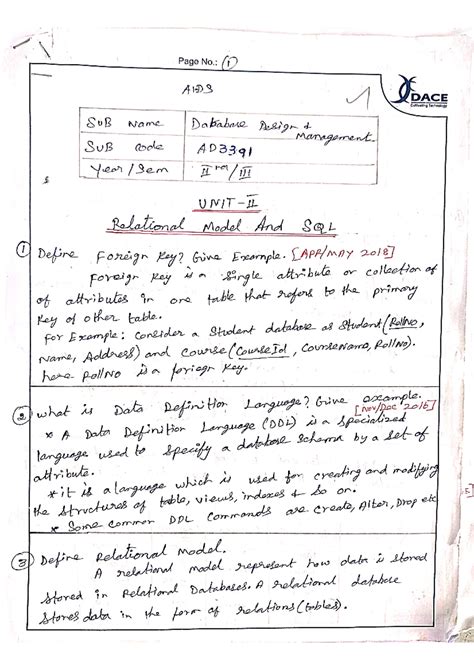 Page No.: 1
DACE
Cultivating Technology
AIDS
SUB Name Database Design & Management
SUB code AD3391
Year/Sem II nd/III
UNIT-II
Relational Model And SQL
1 Define Foreign Key? Give Example. [APR/MAY 2018]
Foreign key is a single attribute or collection of
of attributes in one table that refers to the primary
key of other table.
For Example: Consider a Student database as Student (RollNo,
Name, Address) and Course (CourseId, CourseName, RollNo).
here RollNo is a foriegn key.
2 What is Data Definition Language? Give example.
[Nov/Dec 2016]
* A Data Definition Language (DDL) is a specialized
language used to specify a database schema by a set of
attribute.
* it is a language which is used for creating and modifying
the structures of table, views, indexes & so on.
* Some common DDL commands are create, Alter, Drop etc
3 Define Relational Model.
A relational model represent how data is stored
stored in Relational Databases. A relational database
stores data in the form of relations (tables).